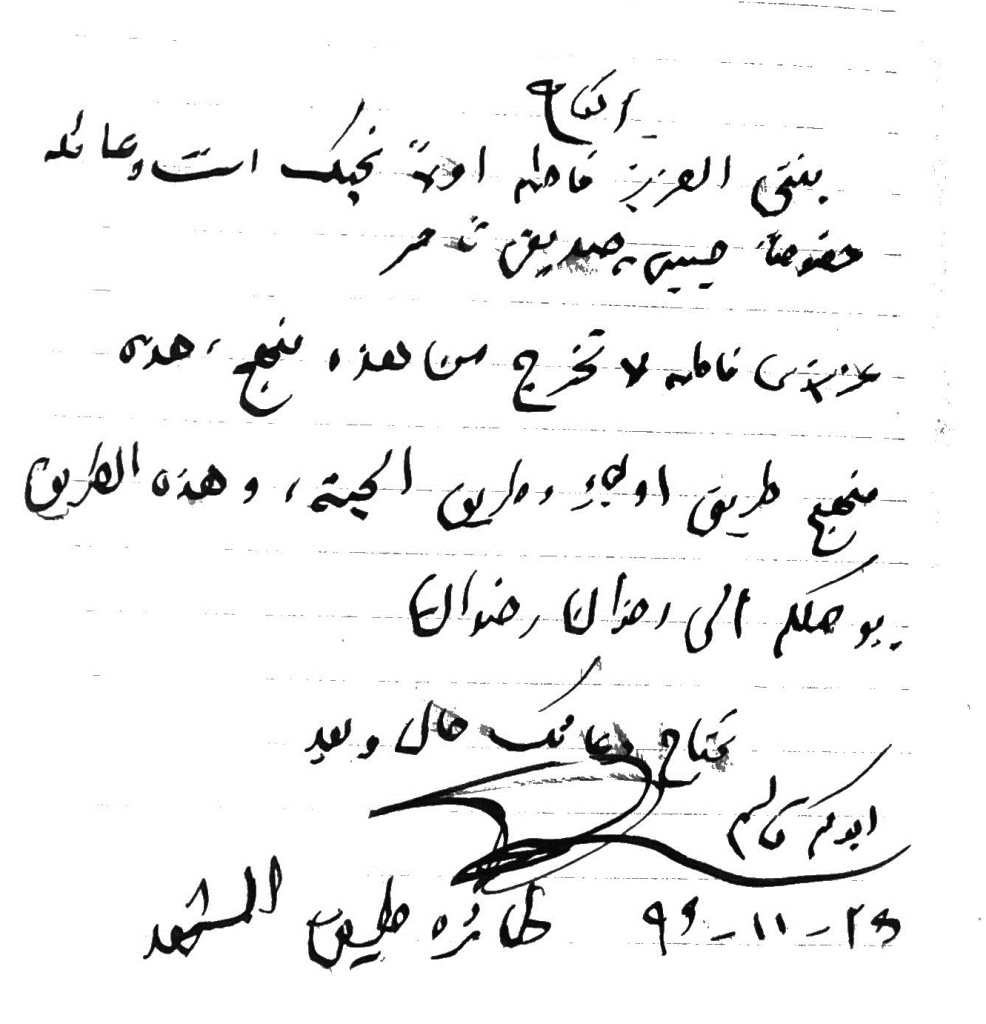 بنتي العزيز فاطمه اولاً نحبك انت وعائله
خصوصاً حبيبي صديق ثامر
عزيزتي فاطمه لا تخرج من هذه منهج، هذه
منهج طريق اولياء وطريق الجنة، و هذه الطريق
يوصلكم الى رضوان رضوان
نحتاج دعائك حال وبعد
ابو قاسم
٢٥-١١-٩٦ طائره طريق المشهد